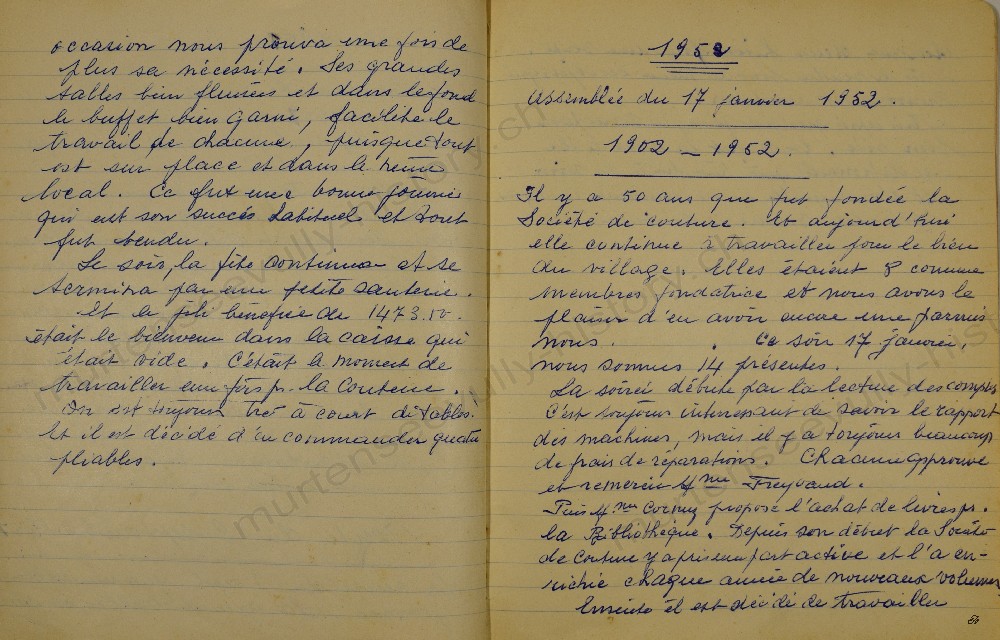 occasion nous prouva une fois de
plus sa nécessité. Ses grandes
salles bien fleuries et dans le fond
le buffet bien garni, facilite le
travail de chacune, puisque tout
est sur place et dans le même
local. Ce fut une bonne journée
qui eut son succès habituel et tout
fut vendu.
Le soir, la fête continua et se
termina par une petite sauterie.
Et le joli bénéfice de 1473.00.
était le bienvenu dans la caisse qui
était vide. C'était le moment de
travailler une fois pr. la Couture.
On est toujours très à court de tables.
Et il est décidé d'en commander quatre
pliables.
1952
Assemblée du 17 janvier 1952.
1902 – 1952.
Il y a 50 ans que fut fondée la
Société de couture. Et aujourd'hui
elle continue à travailler pour le bien
du village. Elles étaient 8 comme
membres fondatrice et nous avons le
plaisir d'en avoir encore une parmis
nous. Ce soir 17 janvier,
nous sommes 14 présentes.
La soirée débute par la lecture des comptes
C'est toujours intéressant de savoir le rapport
des machines, mais il y a toujours beaucoup
de frais de réparations. Chacune approuve
et remercie Mme Freyvaud.
Puis Mme propose l'achat de livres pr.
la Bibliothèque. Depuis son début la Société
de Couture y a pris une part active et l'a en-
richie chaque année de nouveaux volumes
Ensuite il est décidé de travailler
murtenseevully-history.ch